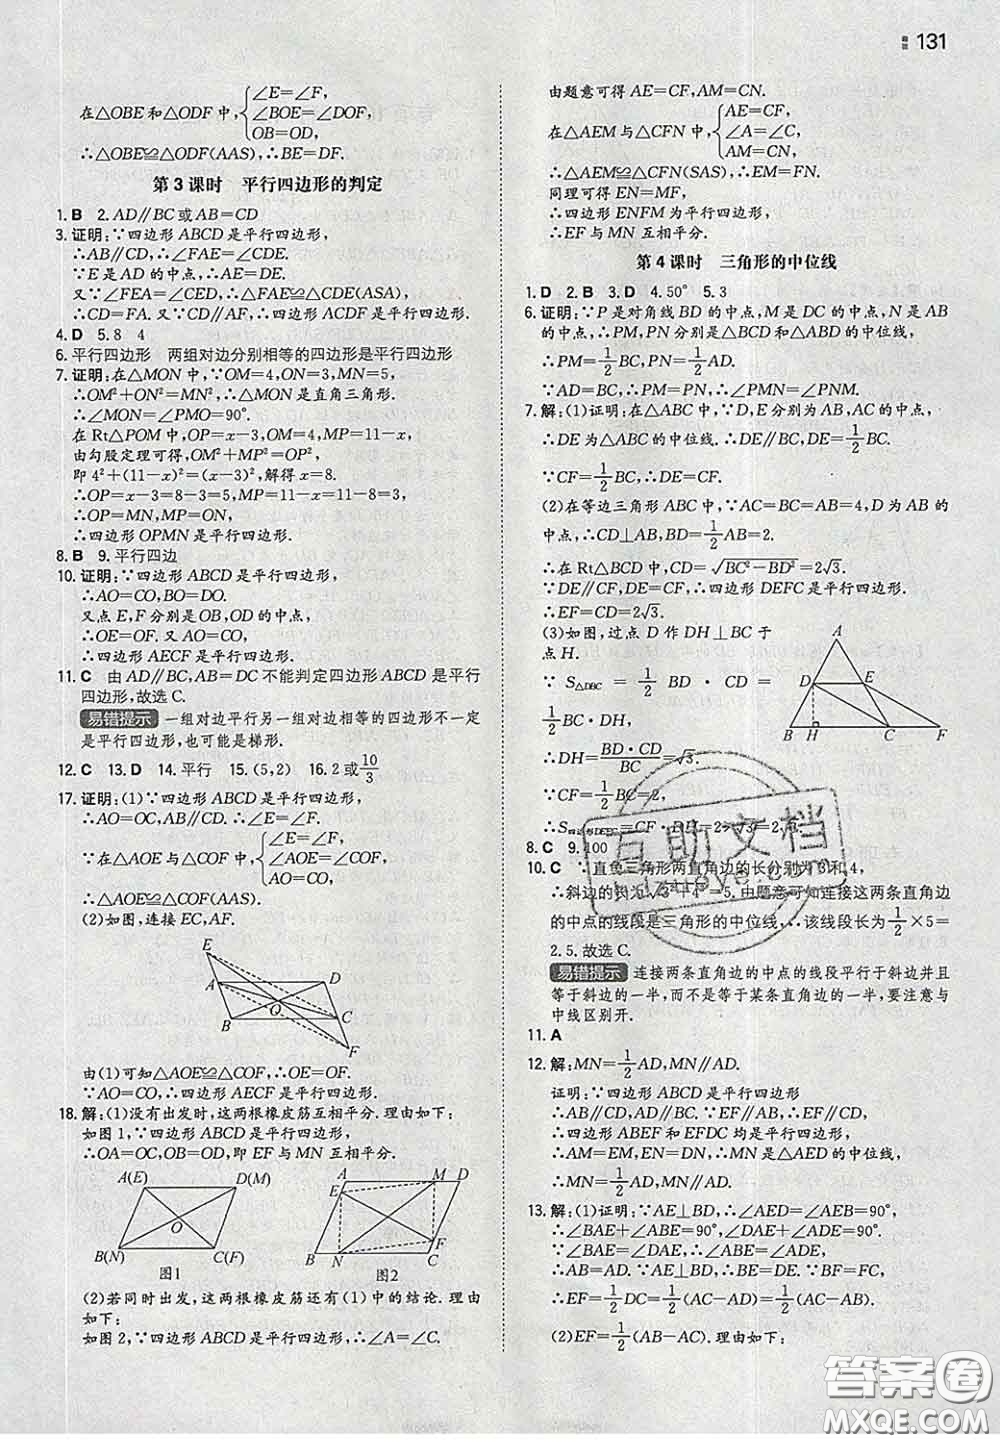 131
在△OBE和△ODF中,{∠E=∠F,
∠BOE=∠DOF,
OB=OD,
∴△OBE≌△ODF(AAS),∴BE=DF.
第3课时 平行四边形的判定
1. B 2. AD∥BC或AB=CD
3. 证明:∵四边形ABCD是平行四边形,
∴AB∥CD,∴∠FAE=∠CDE.
∵E是AD的中点,∴AE=DE.
又∵∠FEA=∠CED,∴△FAE≌△CDE(ASA),
∴CD=FA. 又∵CD∥AF,∴四边形ACDF是平行四边形.
4. D 5. 8 4
6. 平行四边形 两组对边分别相等的四边形是平行四边形
7. 证明:在△MON中,∵OM=4,ON=3,MN=5,
∴OM²+ON²=MN²,∴△MON是直角三角形.
∴∠MON=∠PMO=90°.
在Rt△POM中,OP=x-3,OM=4,MP=11-x,
由勾股定理可得,OM²+MP²=OP²,
即4²+(11-x)²=(x-3)²,解得x=8.
∴OP=x-3=8-3=5,MP=11-x=11-8=3,
∴OP=MN,MP=ON,
∴四边形OPMN是平行四边形.
8. B 9. 平行四边
10. 证明:∵四边形ABCD是平行四边形,
∴AO=CO,BO=DO.
又点E,F分别是OB,OD的中点,
∴OE=OF. 又AO=CO,
∴四边形AECF是平行四边形.
11. C 由AD∥BC,AB=DC不能判定四边形ABCD是平行
四边形,故选C.
易错提示 一组对边平行另一组对边相等的四边形不一定
是平行四边形,也可能是梯形.
12. C 13. D 14. 平行 15. (5,2) 16. 2或10/3
17. 证明:(1)∵四边形ABCD是平行四边形,
∴AO=OC,AB∥CD. ∴∠E=∠F.
∵在△AOE与△COF中,{∠E=∠F,
∠AOE=∠COF,
AO=CO,
∴△AOE≌△COF(AAS).
(2)如图,连接EC,AF.
E
A
D
O
B
C
F
由(1)可知△AOE≌△COF,∴OE=OF.
∵AO=CO,∴四边形AECF是平行四边形.
18. 解:(1)没有出发时,这两根橡皮筋互相平分. 理由如下:
如图1,∵四边形ABCD是平行四边形,
∴OA=OC,OB=OD,即EF与MN互相平分.
A(E) D(M)
O
B(N) C(F)
图1
A M D
E
F
B N C
图2
(2)若同时出发,这两根橡皮筋还有(1)中的结论. 理由
如下:
如图2,∵四边形ABCD是平行四边形,∴∠A=∠C.
由题意可得AE=CF,AM=CN.
在△AEM与△CFN中,{AE=CF,
∠A=∠C,
AM=CN,
∴△AEM≌△CFN(SAS),∴EM=FN.
同理可得EN=MF,
∴四边形ENFM为平行四边形,
∴EF与MN互相平分.
第4课时 三角形的中位线
1. D 2. B 3. D 4. 50° 5. 3
6. 证明:∵P是对角线BD的中点,M是DC的中点,N是AB
的中点,∴PM,PN分别是△BCD和△ABD的中位线,
∴PM=1/2BC,PN=1/2AD.
∵AD=BC,∴PM=PN,∴∠PMN=∠PNM.
7. 解:(1)证明:在△ABC中,∵D,E分别为AB,AC的中点,
∴DE为△ABC的中位线. ∴DE∥BC,DE=1/2BC.
∵CF=1/2BC,∴DE=CF.
(2)在等边三角形ABC中,∵AC=BC=AB=4,D为AB的
中点,∴CD⊥AB,BD=1/2AB=2.
∴在Rt△BCD中,CD=√(BC²-BD²)=2√3.
∵DE∥CF,DE=CF,∴四边形DEFC是平行四边形.
∴EF=CD=2√3.
(3)如图,过点D作DH⊥BC于
点H.
∵ S△DBC=1/2 BD·CD=
1/2BC·DH,
∴DH=BD·CD/BC=√3.
∵CF=1/2CB=2,
∴S四边形DEFC=CF·DH=2×√3=2√3.
A
D E
B H C F
8. C 9. 100
10. C ∵直角三角形两直角边的长分别为3和4,
∴斜边的长为√3²+4²=5. 由题意可知连接这两条直角边
的中点的线段是三角形的中位线,∴该线段长为1/2×5=
2.5. 故选C.
易错提示 连接两条直角边的中点的线段平行于斜边并且
等于斜边的一半,而不是等于某条直角边的一半,要注意与
中线区别开.
11. A
12. 解:MN=1/2AD,MN∥AD.
证明:∵四边形ABCD是平行四边形
∴AB∥CD,AD∥BC. ∵EF∥AB,∴EF∥CD,
∴四边形ABEF和EFDC均是平行四边形.
∴AM=EM,EN=DN,∴MN是△AED的中位线,
∴MN=1/2AD,MN∥AD.
13. 解:(1)证明:∵AE⊥BD,∴∠AED=∠AEB=90°,
∴∠BAE+∠ABE=90°,∠DAE+∠ADE=90°.
∵∠BAE=∠DAE,∴∠ABE=∠ADE,
∴AB=AD. ∵AE⊥BD,∴BE=DE. ∵BF=FC,
∴EF=1/2DC=1/2(AC-AD)=1/2(AC-AB).
(2)EF=1/2(AB-AC). 理由如下:
互助文档
答案圈
MXQE.COM